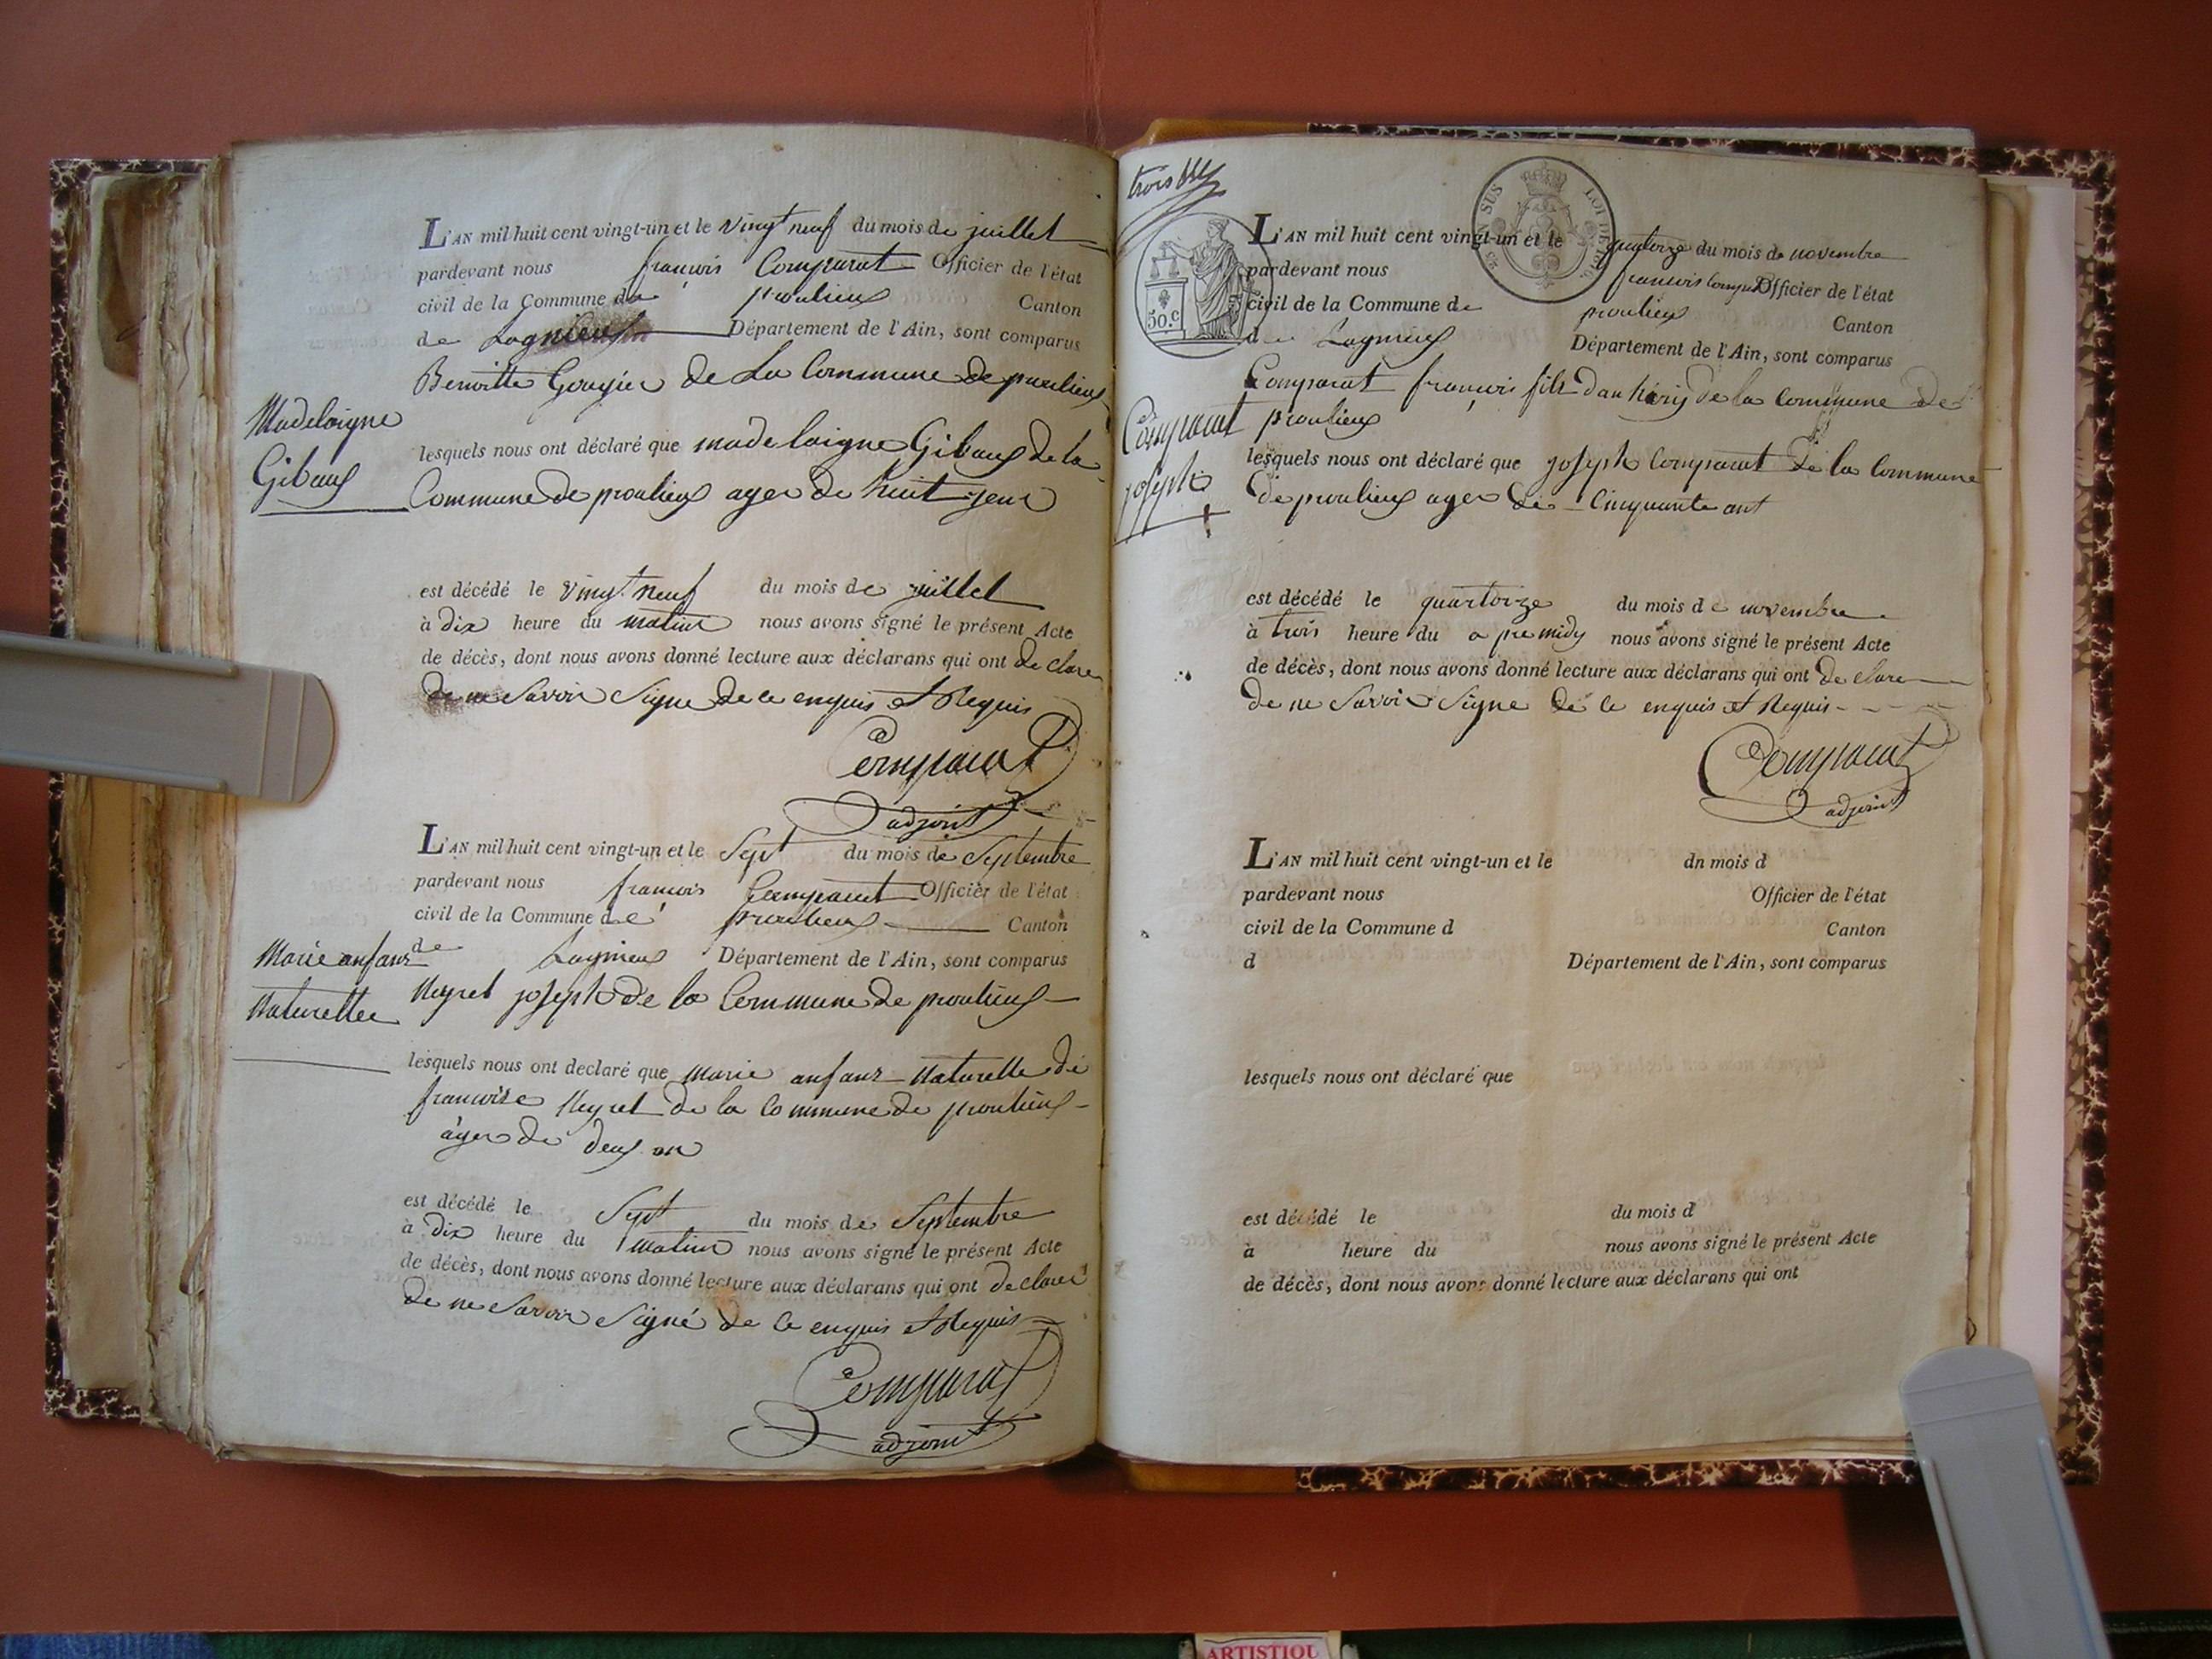 L'AN mil huit cent vingt-un et le vingt neuf du mois de juillet
pardevant nous francois Comparat Officier de l'état
civil de la Commune de proulieux Canton
de Lagnieux Département de l'Ain, sont comparus
Benoitte Gougier de La Commune de proulieux
Madelaigne
Gibaux
lesquels nous ont déclaré que madelaigne Gibaux de la
Commune de proulieux ager de huit jeur
est décédé le vingt neuf du mois de juillet
à dix heure du matin nous avons signé le présent Acte
de décès, dont nous avons donné lecture aux déclarans qui ont de clare
de ne Savoir Signe de ce enquis et Requis
Comparat
adjoint
L'AN mil huit cent vingt-un et le Sept du mois de Septembre
pardevant nous francois Comparat Officier de l'état
civil de la Commune de proulieux Canton
de Lagnieux Département de l'Ain, sont comparus
Marie anfans
Naturellee
Neyret joseph de la Commune de proulieux
lesquels nous ont declaré que Marie anfans Naturelle de
francoise Neyret de la Commune de proulieux
âger de deux an
est décédé le Sept du mois de Septembre
à dix heure du matin nous avons signé le présent Acte
de décès, dont nous avons donné lecture aux déclarans qui ont declarer
de ne Savoir Signé de ce enquis et Requis
Comparat
adjoint
trois
SUS LOI DE
50.c
L'AN mil huit cent vingt-un et le quatorze du mois de novembre
pardevant nous francois Officier de l'état
civil de la Commune de proulieux Canton
de Lagnieux Département de l'Ain, sont comparus
Comparat francois fils de la Commune de
proulieux
Comparat
joseph
lesquels nous ont déclaré que joseph Comparat de la Commune
de proulieux ager de Cinquante ant
est décédé le quartorze du mois de novembre
à trois heure du a pre midy nous avons signé le présent Acte
de décès, dont nous avons donné lecture aux déclarans qui ont de clare
de ne Savoir Signe de ce enquis et Requis
Comparat
adjoint
L'AN mil huit cent vingt-un et le dn mois d
pardevant nous Officier de l'état
civil de la Commune d Canton
d Département de l'Ain, sont comparus
lesquels nous ont déclaré que
est décédé le du mois d
à heure du nous avons signé le présent Acte
de décès, dont nous avons donné lecture aux déclarans qui ont
ARTISTIQU